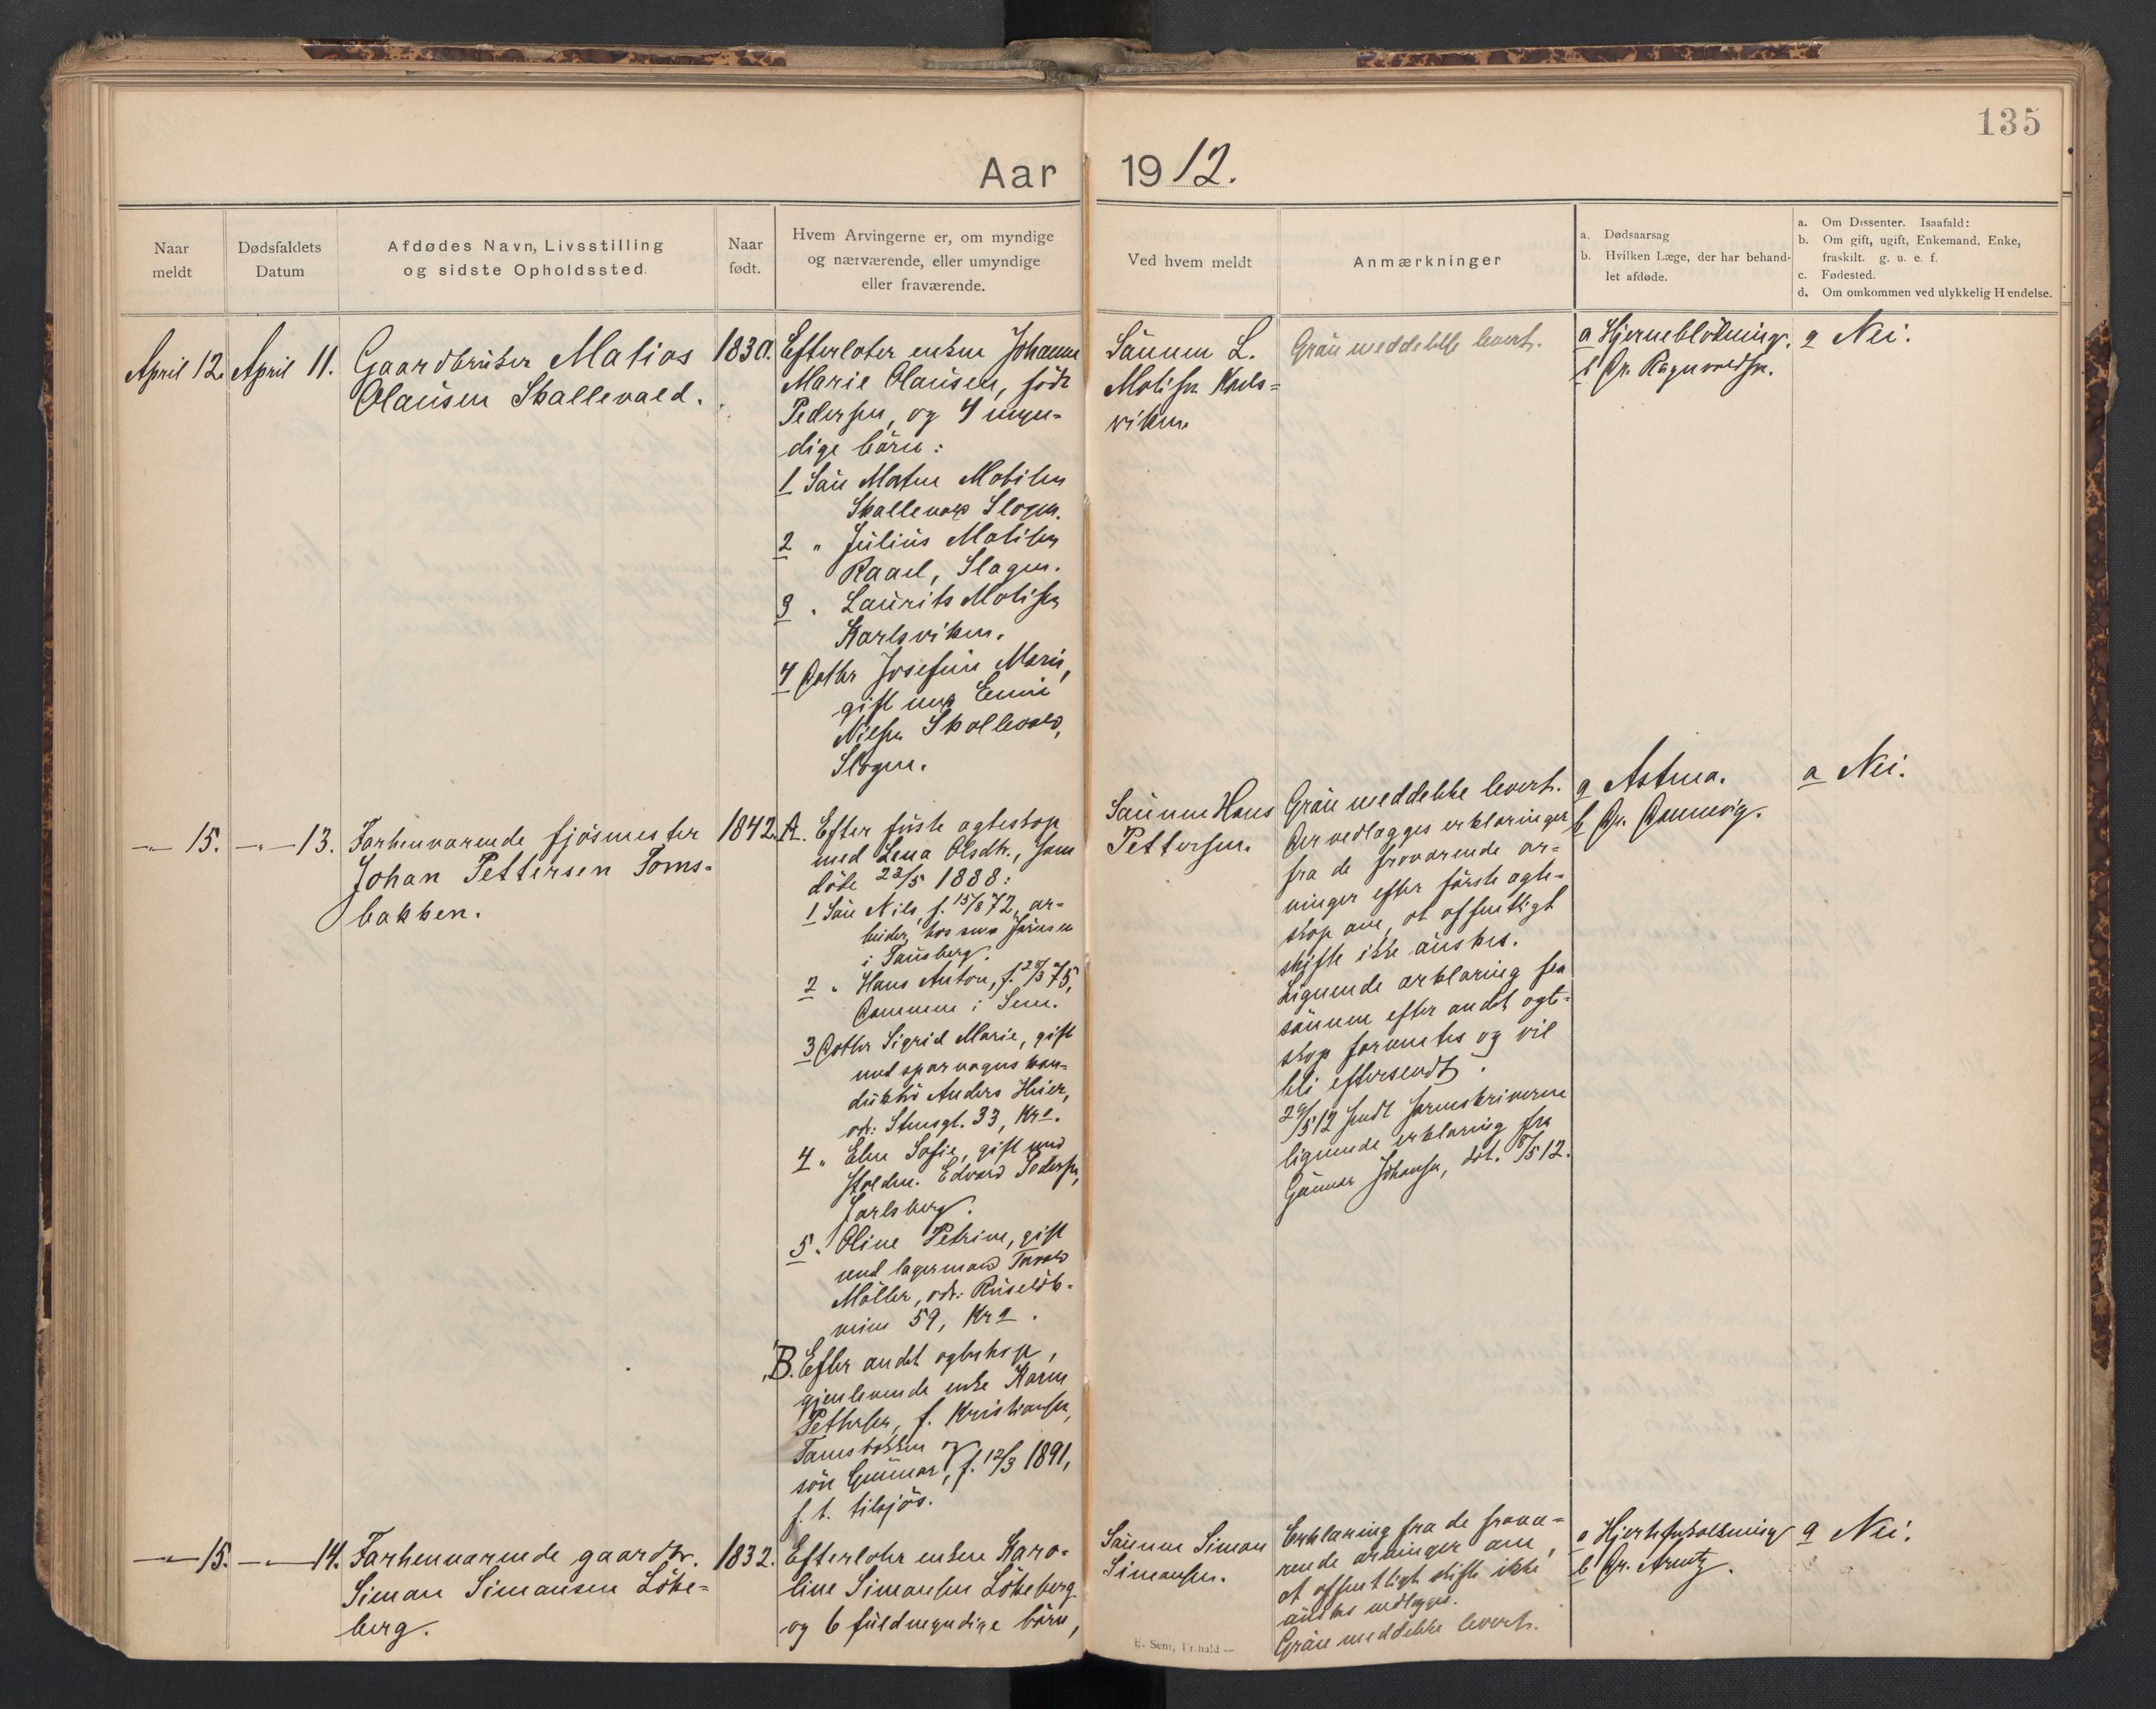 135
Aar 1912.
Naar meldt
Dødsfaldets Datum
Afdødes Navn, Livsstilling og sidste Opholdssted.
Naar født.
Hvem Arvingerne er, om myndige og nærværende, eller umyndige eller fraværende.
Ved hvem meldt
Anmærkninger
a. Dødsaarsag
b. Hvilken Læge, der har behandlet afdøde.
a. Om Dissenter. Isaafald:
b. Om gift, ugift, Enkemand, Enke, fraskilt. g. u. e. f.
c. Fødested.
d. Om omkommen ved ulykkelig Hændelse.
April 12.
April 11.
Gaardbruker Matias
Olausen Skallevald.
1830.
Efterlater enken Johanne
Marie Olausen, født
Pedersen, og 4 myn-
dige börn:
1 Sön Matin Matisen
Skallevald Slagen.
2 " Julius Matisen
Raael, Slagen.
3 " Laurits Matisen
Karlsviken.
4 Datter Josefine Marie,
gift med
Nilsen Skallevald,
Slagen.
Sönnen L.
Matisen Karls-
viken
Grön meddelelse levert.
a Hjerneblödning.
b Dr. Ragnvaldsen.
a Nei.
— " — 15.
— " — 13.
Forhenværende fjösmester
Johan Pettersen Toms-
bakken.
1842.
A. Efter förste ægteskap
med Lena Olsdtr., som
döde 23/5 1888:
1 Sön Nils, f. 15/8 72, ar-
beider, hos
i Tönsberg.
2 " Hans Anton, f. 28/3 75,
Dammen i Sem.
3 Datter Sigrid Marie, gift
med sporvogns kon-
duktör Anders Heier,
adr: Stensgt. 33, Kra.
4 " Elen Sofie, gift med
Edvard Pedersen,
Jarlsberg.
5 " Oline Petrine, gift
med lagermand
Möller, adr: Ruselök-
veien 59, Kra.
B. Efter andet ægteskap,
gjenlevende enke Karen
Pettersen, f. Kristiansen,
Tomsbakken og
sön Gunnar, f. 12/3 1891,
f. t. tilsjös.
Sönnen Hans
Pettersen.
Grön meddelelse levert.
Der vedlægges erklæringer
fra de fraværende ar-
vinger efter förste ægte-
skap om, at offentligt
skifte ikke önskes.
Lignende erklæring fra
sönnen efter andet ægte-
skap forventes og vil
bli eftersendt.
29/5 12 sendt sorenskriveren
lignende erklæring fra
Gunnar Johansen, dat. 8/5 12.
a Astma.
b Dr.
a Nei.
— " — 15.
— " — 14.
Forhenværende gaardbr.
Simon Simonsen Löke-
berg.
1832.
Efterlater enken Karo-
line Simonsen Lökeberg
og 6 fuldmyndige börn,
Sönnen Simon
Simonsen.
Erklæring fra de fravæ-
rende arvinger om,
at offentligt skifte ikke
önskes vedlægges.
Grön meddelelse levert.
a
b Dr. Arentz.
a Nei.
E. Sem, Fr.hald —